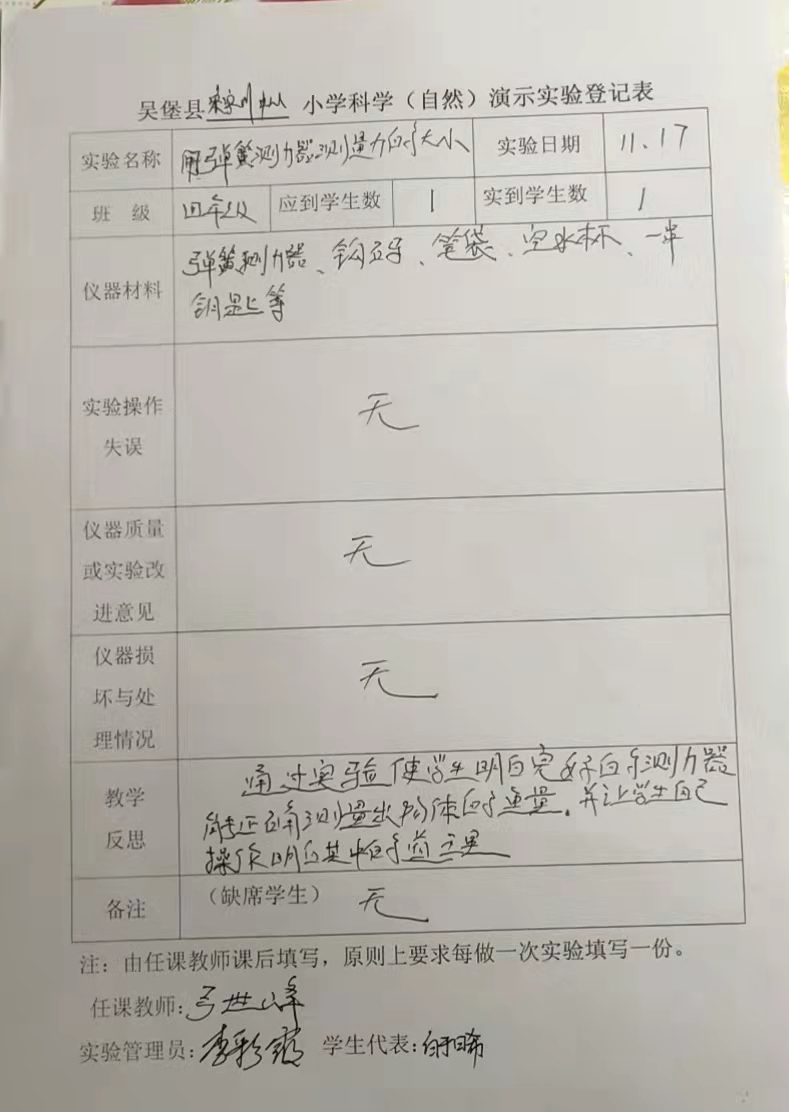 吴堡县 小学科学（自然）演示实验登记表
实验名称 用弹簧测力器测量力的大小 实验日期 11.17
班 级 四年级 应到学生数 1 实到学生数 1
仪器材料 弹簧测力器、钩码、笔袋、空水杯、一串
钥匙等
实验操作
失误
无
仪器质量
或实验改
进意见
无
仪器损
坏与处
理情况
无
教学
反思
通过实验使学生明白完好的测力器
能正确测量出物体的重量，并让学生自己
操作明白其中的
备注 （缺席学生） 无
注：由任课教师课后填写，原则上要求每做一次实验填写一份。
任课教师：弓世峰
实验管理员：李彩 学生代表：